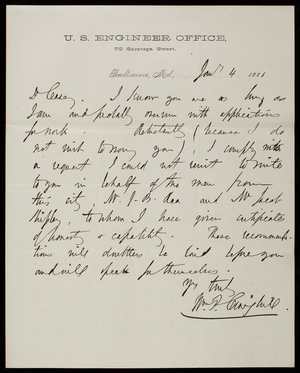 U. S. ENGINEER OFFICE,
70 Saratoga Street,
Baltimore, Md., Jany 4 1881
Dr Casey. I know you are as busy as
I am and probably overrun with applications
for work. Reluctantly (because I do
not wish to worry you) I comply with
a request I could not resist to write
to you in behalf of two men from
this city, Mr. J. B. and Mr Jacob
, to whom I have given certificates
of honesty & capability. These recommenda-
tions will doubtless be laid before you
and will speak for themselves.
Yr truly
Wm. P. Craighill